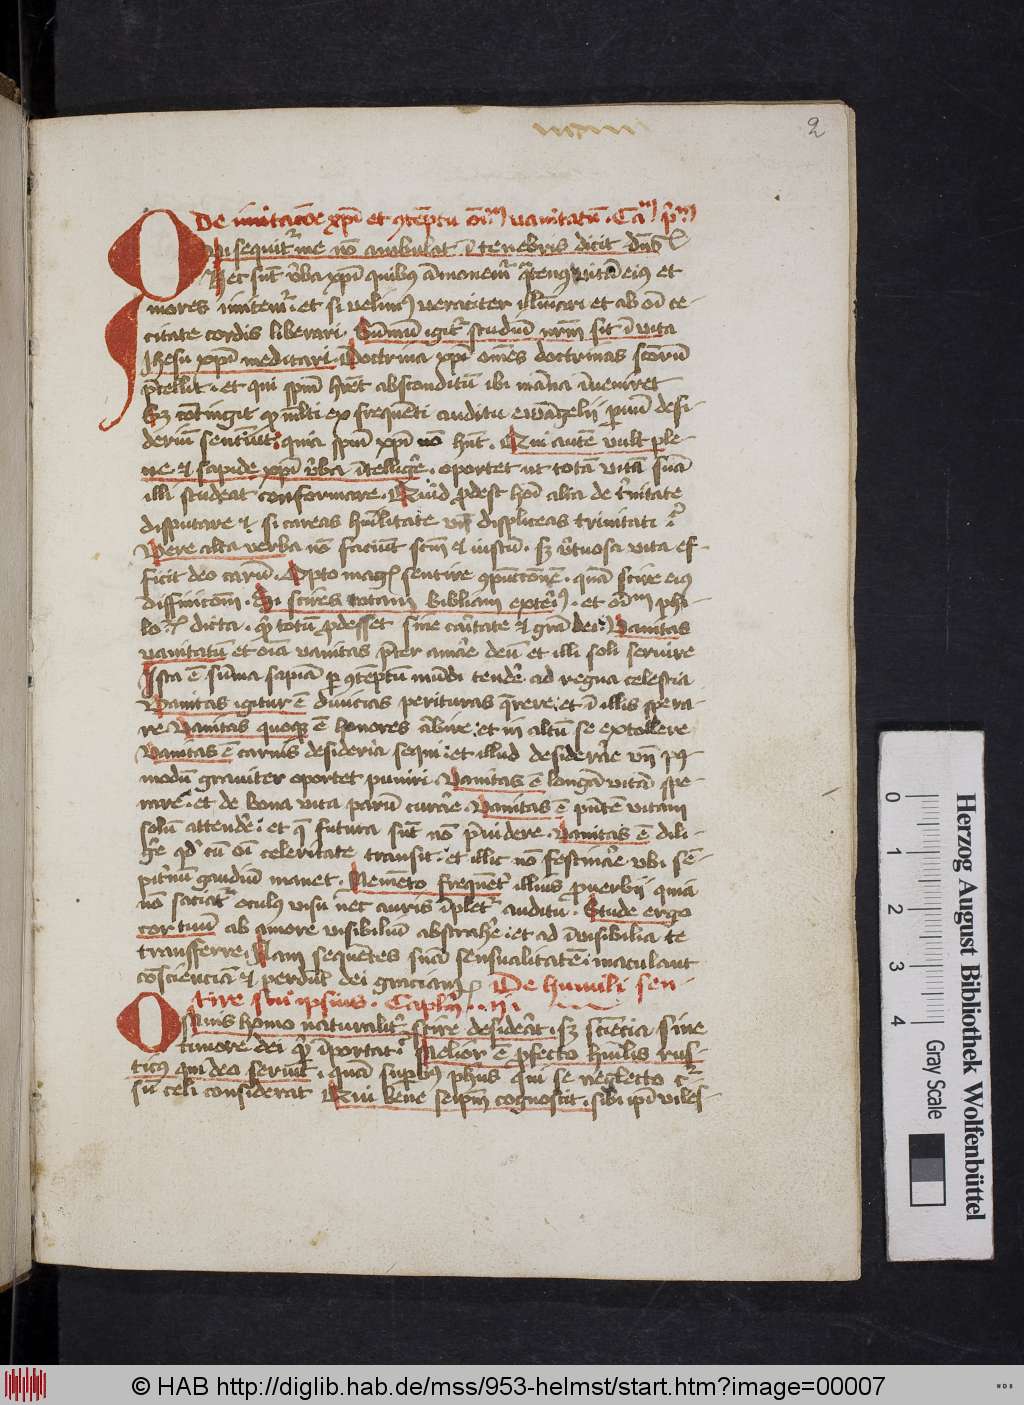 2
De imitacōe xp̄i et ꝯtēptu oīm vanitatū . Cam pm
Qui sequitr me nō ambulat ī tenebris dicit dns
Hec sūt v̄ba xp̄i quibus āmonemr qtenus vitā eius et
mores imitemr . et si velimus veraciter illūīari et ab oī ce-
citate cordis liberari . Sūmū igitr studiū nrm̄ sit ī vita
Jhesu xp̄i meditari . Doctrina xp̄i om̄es doctrinas scōrū
p̄cellit . et qui spm̄ hret absconditū ibi māna īveniret
Sꝫ cōtingit qꝫ mlti ex frequēti auditu ewāgelii pvum desi-
deriū sentiūt . quia spm̄ xp̄i nō hnt . Qui autē vult ple-
ne et sapide xp̄i v̄ba ītelligere . oportet ut totā vitā suā
illi studeat conformare . Quid prodest hoī alta de trinitate
disputare et si careas hūilitate vn̄ displiceas trinitati ?
Vere alta verba nō faciūt scm̄ et iustū . sꝫ v̄tuosa vita ef-
ficit deo carū . Opto magis sentire ꝯpūctionē . quā scire eius
diffinicōem . Si scires totam bibliam exterius . et oīm phi-
lo . dicta . qd totū prodesset sine caritate et grā dei ? Vanitas
vanitatū et oīa vanitas p̄ter amare deū et illi soli servire
Ista ē sūma sapīa p ꝯtēptū mūdi tendere ad regna celestia
Vanitas igitur ē divicias perituras qrere . et ī illis spera-
re . Vanitas quoqꝫ ē honores ābire . et in altū se extollere
Vanitas ē carnis desideria sequi . et illud desiderare vn̄ pꝰ
modū graviter oportet puniri . Vanitas ē longā vitā spe-
rare . et de bona vita parū curare . Vanitas ē pn̄tē vitam
solū attendere . et q̄ futura sūt nō pvidere . Vanitas ē dili-
gere qd cū oī celeritate transit . et illic nō festinare ubi sē-
pitnū gaudiū manet . Memēto frequētr illius proverbii quia
nō saciatr oculus visu nec auris īpletr auditu . Stude ergo
cor tuū ab amore visibiliū abstrahere . et ad īvisibilia te
transferre . Nam sequētes suā sensualitatē . maculant
cōscienciā et perdūt dei graciam . De humili sen-
tire sui ipsius . Caplm . ij .
Omnis homo naturalitr scire desiderat . sꝫ sciēcia sine
timore dei qd īportat ? Melior ē profecto hūilis rus-
ticus qui deo servit . quā supbus phus qui se neglecto cr-
sū celi considerat Qui bene seipm̄ cognoscit . sibi ipi viles-
Herzog August Bibliothek Wolfenbüttel
0 1 2 3 4
Gray Scale
© HAB http://diglib.hab.de/mss/953-helmst/start.htm?image=00007